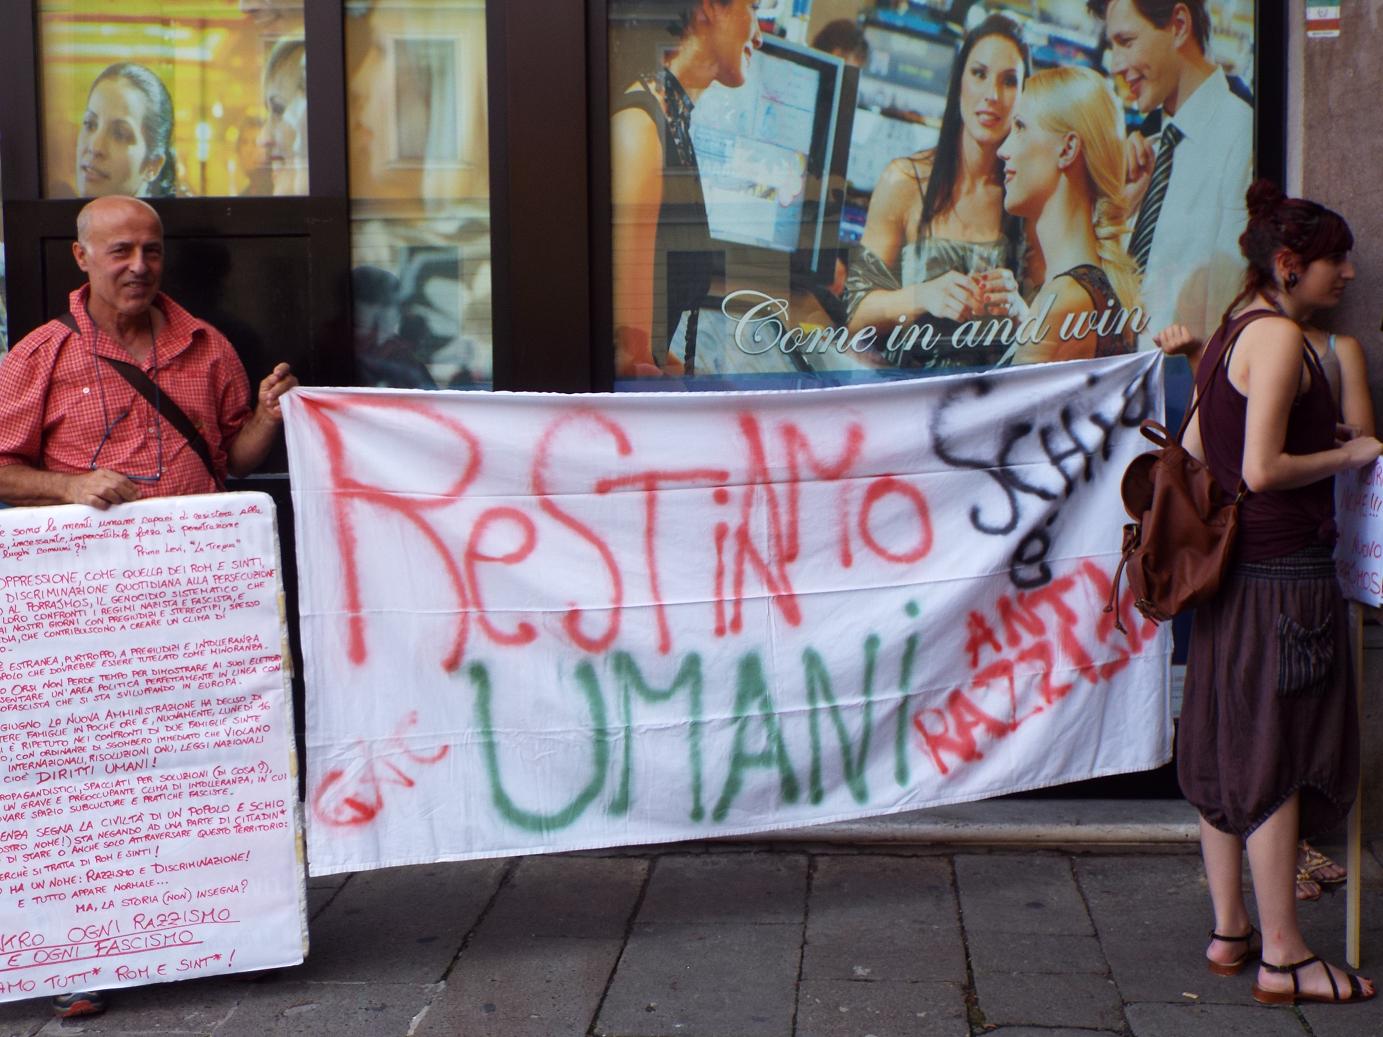 Come in and win
RESTiAMO
UMANi
SCHiO
è
ANTI
RAZZISTA
sono le menti umane capaci di resistere alla
incessante, impercettibile forza di penetrazione
luoghi comuni?"
Primo Levi, "La Tregua"
OPPRESSIONE, COME QUELLA DEI ROM E SINTI,
DISCRIMINAZIONE QUOTIDIANA ALLA PERSECUZIONE
AL PORRAJMOS, IL GENOCIDIO SISTEMATICO CHE
LORO CONFRONTI I REGIMI NAZISTA E FASCISTA, E
AI NOSTRI GIORNI CON PREGIUDIZI E STEREOTIPI, SPESSO
CHE CONTRIBUISCONO A CREARE UN CLIMA DI
ESTRANEA, PURTROPPO, A PREGIUDIZI E INTOLLERANZA
CHE DOVREBBE ESSERE TUTELATO COME MINORANZA.
ORSI NON PERDE TEMPO PER DIMOSTRARE AI SUOI ELETTORI
UN'AREA POLITICA PERFETTAMENTE IN LINEA CON
CHE SI STA SVILUPPANDO IN EUROPA.
GIUGNO LA NUOVA AMMINISTRAZIONE HA DECISO DI
FAMIGLIE IN POCHE ORE E, NUOVAMENTE, LUNEDÌ 16
È RIPETUTO NEI CONFRONTI DI DUE FAMIGLIE SINTE
CON ORDINANZE DI SGOMBERO IMMEDIATO CHE VIOLANO
INTERNAZIONALI, RISOLUZIONI ONU, LEGGI NAZIONALI
CIOÈ DIRITTI UMANI!
PROPAGANDISTICI, SPACCIATI PER SOLUZIONI (DI COSA?),
UN GRAVE E PREOCCUPANTE CLIMA DI INTOLLERANZA, IN CUI
SPAZIO SUBCULTURE E PRATICHE FASCISTE.
SEGNA LA CIVILTÀ DI UN POPOLO E SCHIO
NOME!) STA NEGANDO AD UNA PARTE DI CITTADIN*
DI STARE O ANCHE SOLO ATTRAVERSARE QUESTO TERRITORIO:
SI TRATTA DI ROM E SINTI!
HA UN NOME: RAZZISMO E DISCRIMINAZIONE!
E TUTTO APPARE NORMALE...
MA, LA STORIA (NON) INSEGNA?
OGNI RAZZISMO
E OGNI FASCISMO
TUTT* ROM E SINT*!
NUOVO